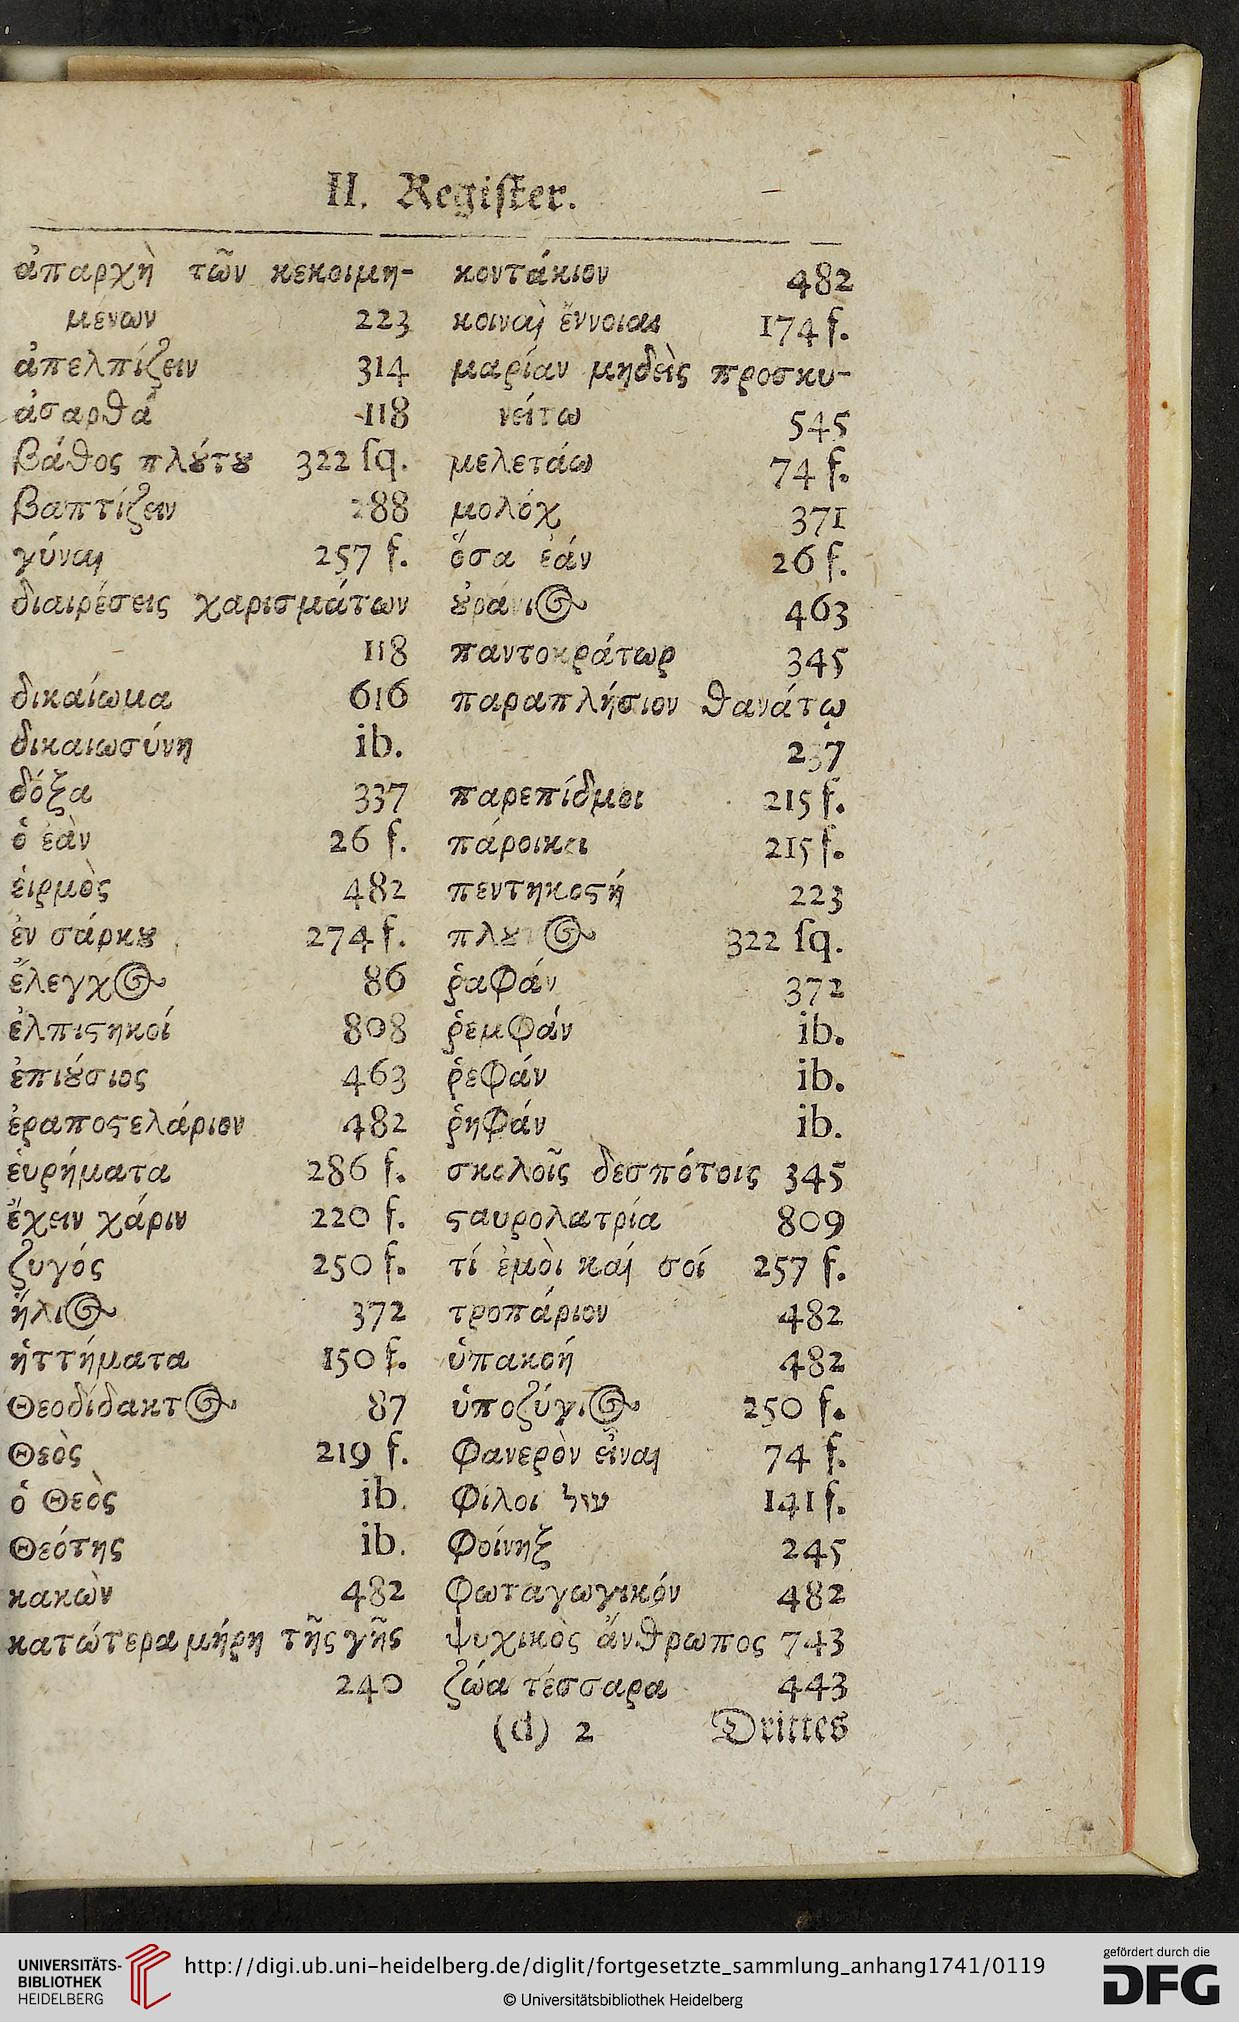 II. Register.
ἀπαρχὴ τῶν κεκοιμη-
μένων 223
ἀπελπίζειν 314
ἀσαρθά 118
βάθος πλȣ́τȣ 322 sq.
βαπτίζειν 288
γύναι 257 f.
διαιρέσεις χαρισμάτων
118
δικαίωμα 616
δικαιωσύνη ib.
δόξα 337
ὁ ἐὰν 26 f.
ἑιρμὸς 482
ἐν σάρκȣ 274 f.
ἔλεγχος 86
ἐλπιϛηκοί 808
ἐπιȣ́σιος 463
ἐραποϛελάριον 482
ἑυρήματα 286 f.
ἔχειν χάριν 220 f.
ζυγός 250 f.
ἥλιος 372
ἡττήματα 150 f.
Θεοδίδακτος 87
Θεὸς 219 f.
ὁ Θεὸς ib.
Θεότης ib.
κακὼν 482
κατώτερα μήρη τῆς γῆς
240
κοντάκιον 482
κοιναὶ ἔννοιαι 174 f.
μαρίαν μηδεὶς προσκυ-
νείτω 545
μελετάω 74 f.
μολόχ 371
ὅσα ἐάν 26 f.
ȣ̓ράνιος 463
παντοκράτωρ 345
παραπλήσιον θανάτῳ
237
παρεπίδμοι 215 f.
πάροικοι 215 f.
πεντηκοϛή 223
322 sq.
ῥαφάν 372
ῥεμφάν ib.
ῥεφάν ib.
ῥηφάν ib.
σκολοῖς δεσπότοις 345
ϛαυρολατρία 809
τί ἐμὸι καί σοί 257 f.
τροπάριον 482
ὑπακοή 482
ὑποζύγιος 250 f.
φανερὸν εἶναι 74 f.
φίλοι 141 f.
φοίνηξ 245
φωταγωγικόν 482
ψυχικὸς ἄνθρωπος 743
ζώα τέσσαρα 443
(d) 2 Drittes
UNIVERSITÄTS-
BIBLIOTHEK
HEIDELBERG
http://digi.ub.uni-heidelberg.de/diglit/fortgesetzte_sammlung_anhang1741/0119
© Universitätsbibliothek Heidelberg
gefördert durch die
DFG